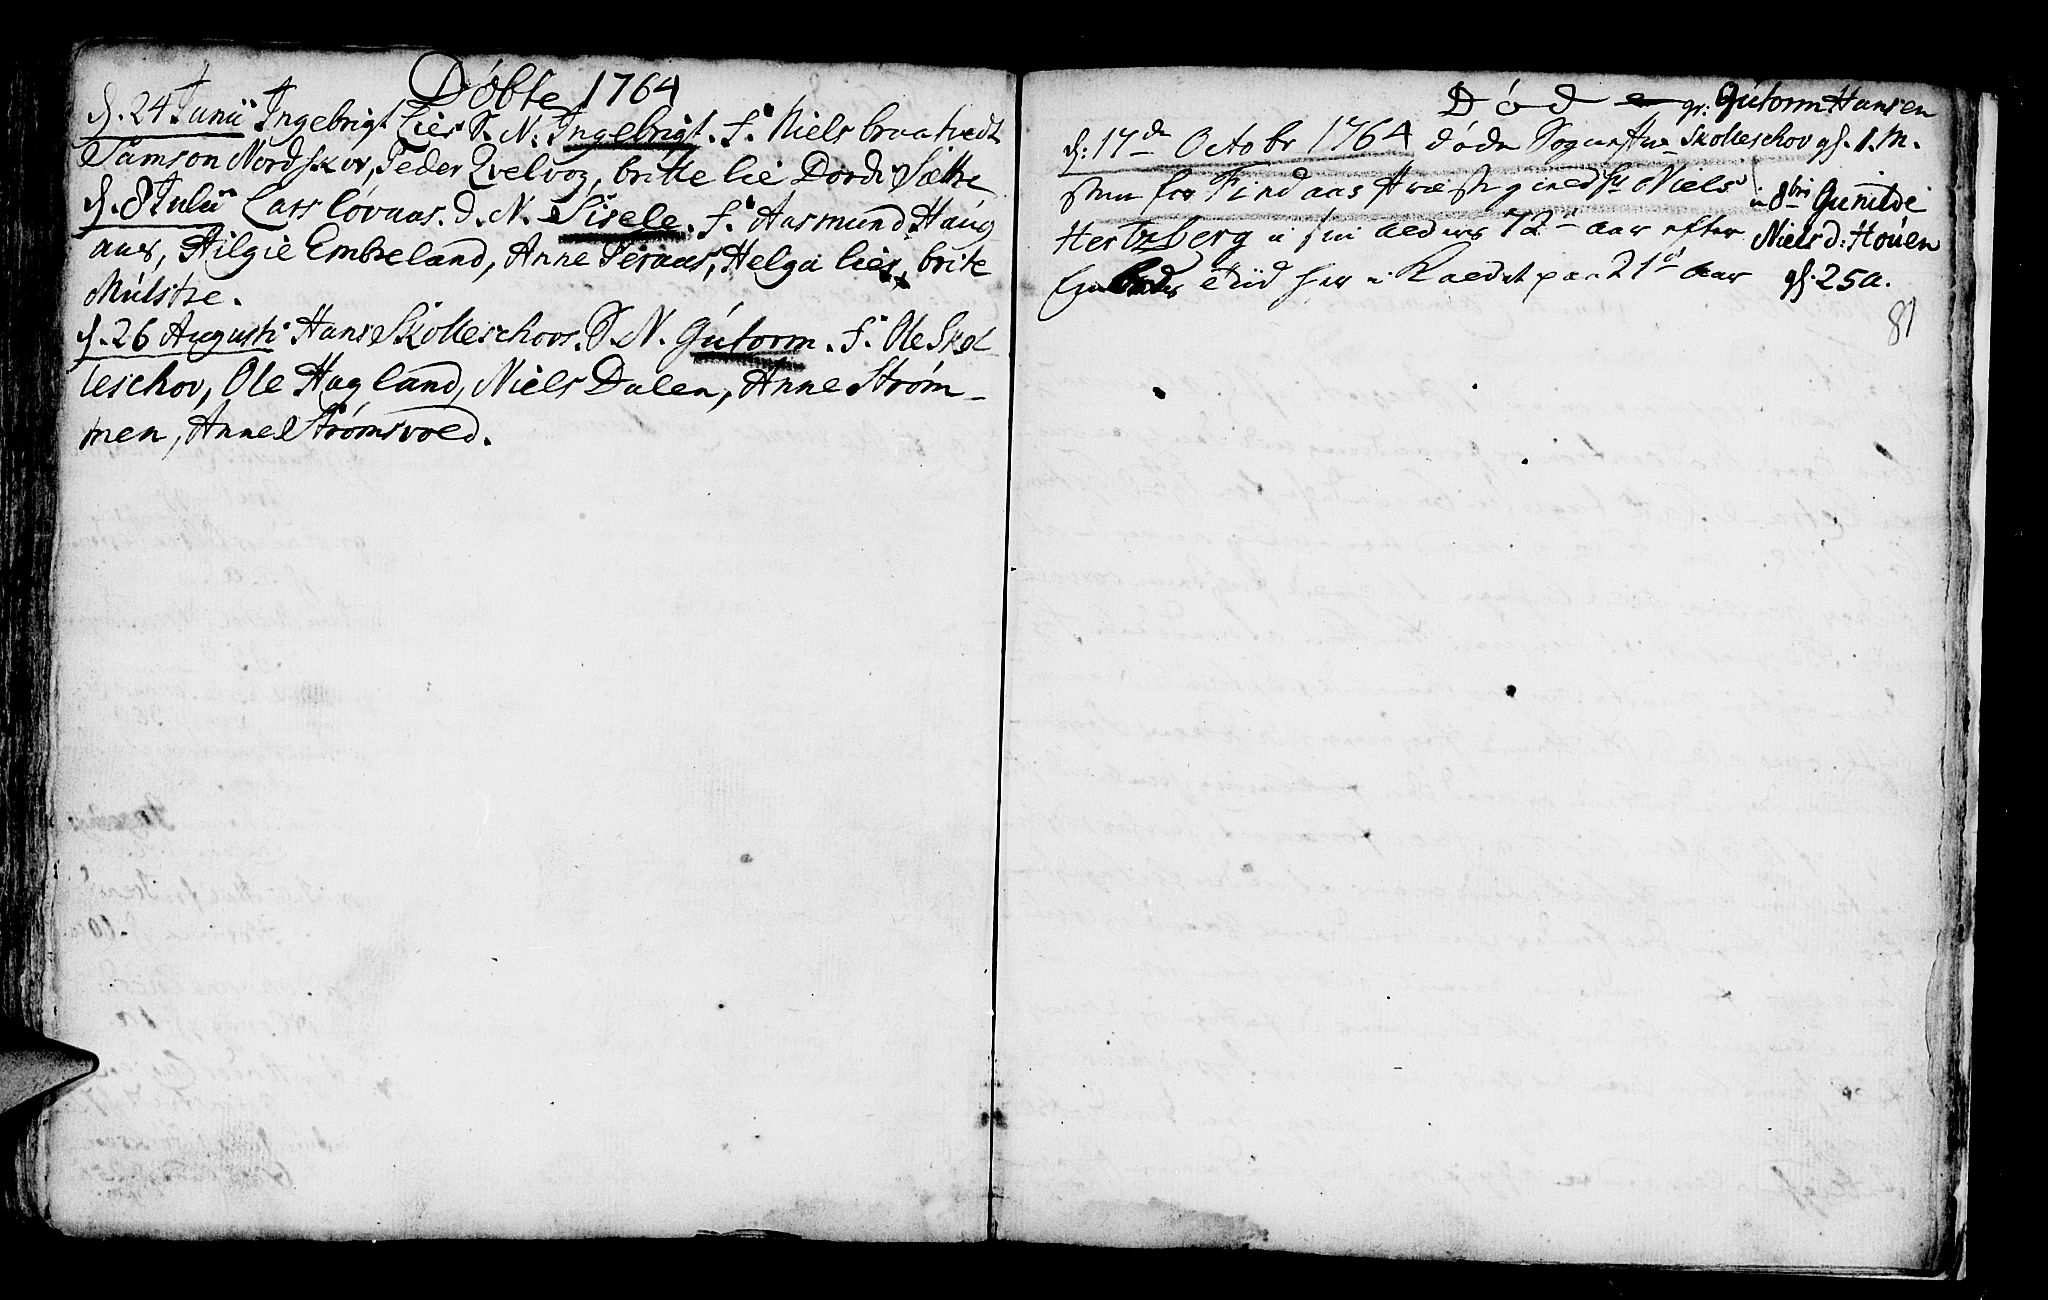 Døbte 1764
d. 24 Junii Ingebrigt Lies S. N. Ingebrigt. F. Niels braatvedt
Samson Nordskov, Peder Qvelvog, britte lie Dordi Sætre
d. 8 Julii Lars Løvaas. D. N. Sisele. F. Aasmund Haug
aas, Hilgie Embreland, Anne Teraas, Helga lies, brite
Mulstre.
d. 26 Augusti Hans Skolleschovs. S. N. Gutorm. F. Ole Skol
leschov, Ole Hagland, Niels Dalen, Anne Strøm-
men, Anne Strømsvoed.
Døde
d: 17de October 1764 døde Sogne
for Findaas Præstegield Hr Niels
Hertzberg i sin alders 72 aar efter
Tiid her i Kaldet paa 21 aar
gr: Gutorm Hansen
Skolleschov gl. 1. M.
8bri Gunilde
Nielsd: Houen
gl. 25 a.
81